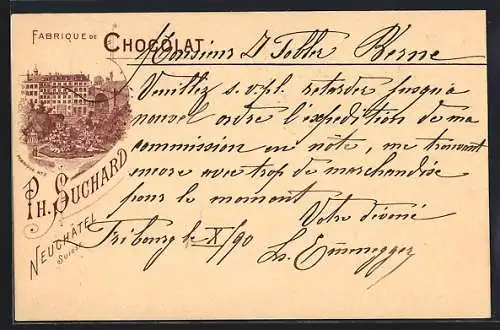 FABRIQUE DE CHOCOLAT.
PH. SUCHARD
NEUCHÂTEL
SUISSE
Monsieur Tobler Berne
Veuillez s.v.pl. retarder jusqu'à
nouvel ordre l'expédition de ma
commission en note, me trouvant
encore avec trop de marchandise
pour le moment
Votre dévoué
Fribourg le X/90
Emmenegger